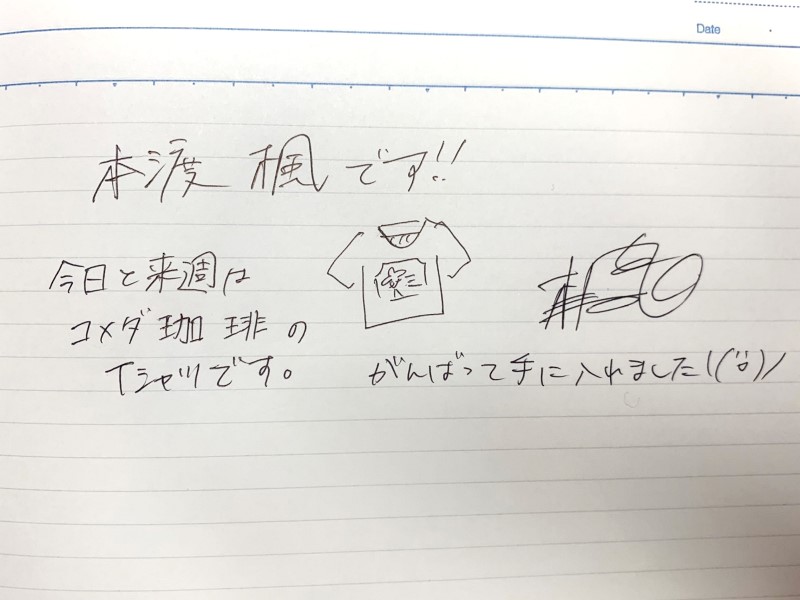 Date
本渡 楓です!!
今日と来週は
コメダ珈琲の
Tシャツです。
がんばって手に入れました!